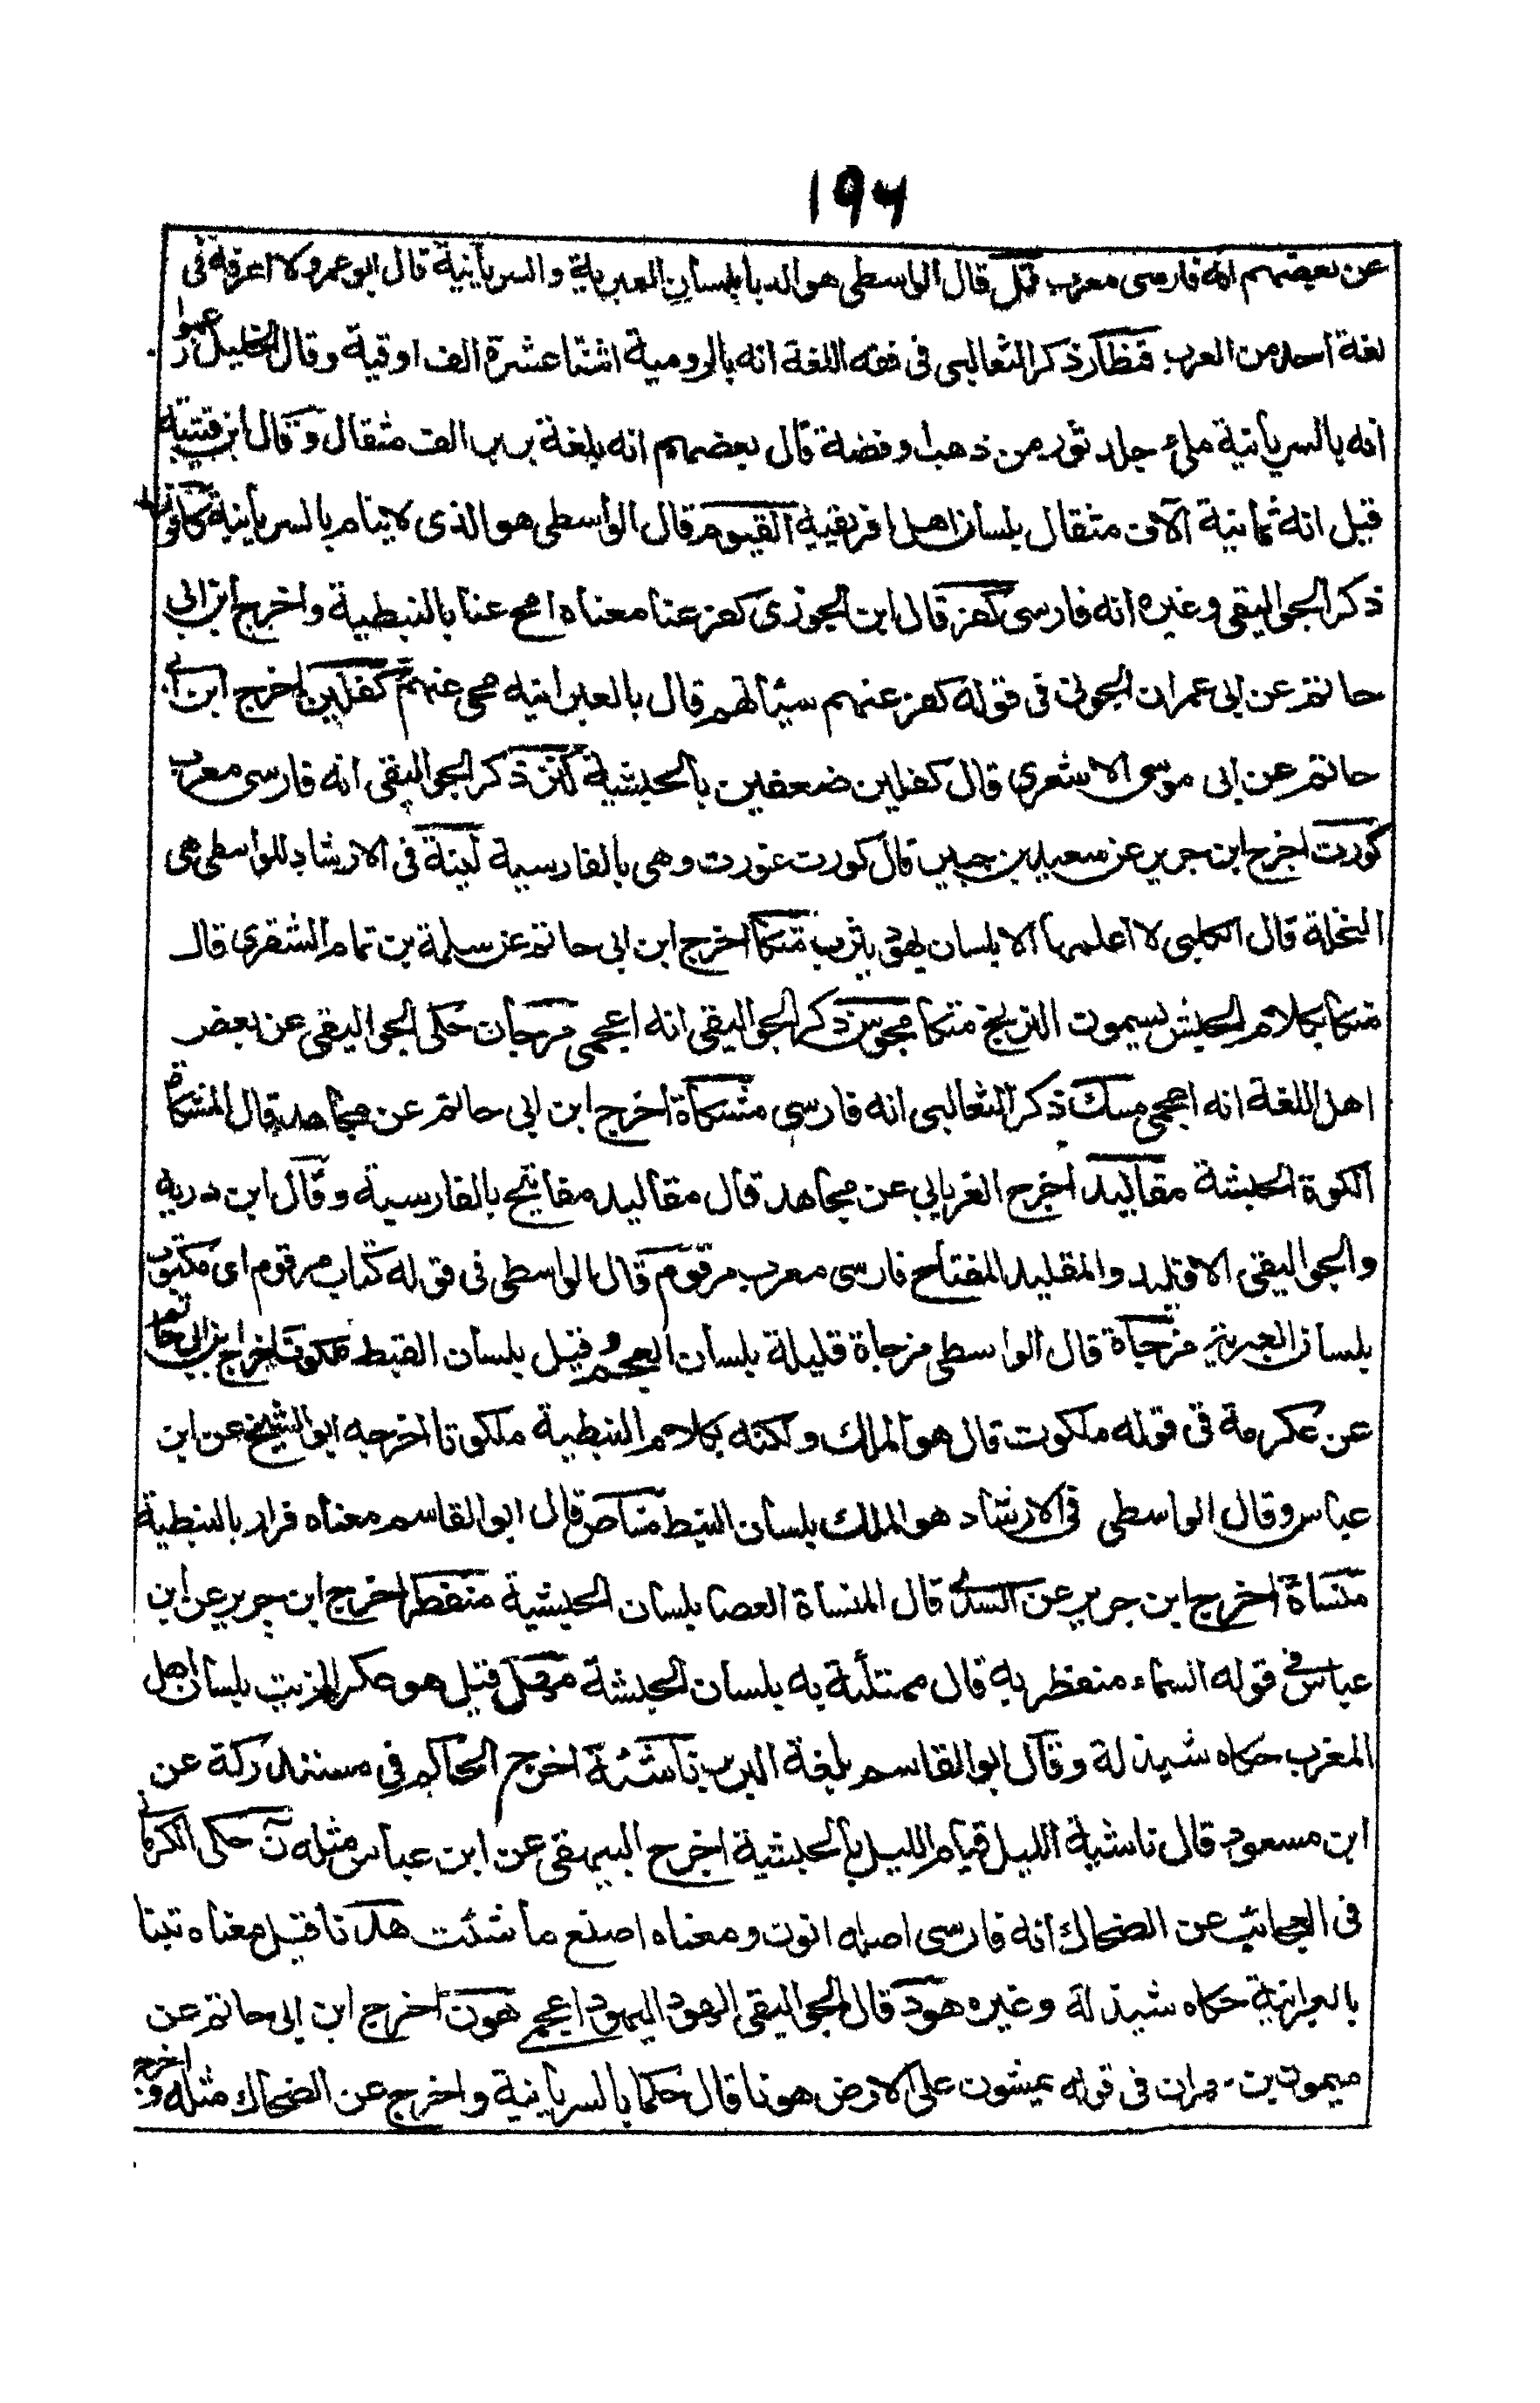 ۱۹۴
عن بعضهم انه فارسى معرب قمل قال الواسطى هو الدبا بلسان العبرية والسريانية قال ابو عمرو لا اعرفه فى
لغة احد من العرب قنطار ذكر الثعالبى فى فقه اللغة انه بالرومية اثنتا عشرة الف اوقية وقال الخليل زعموا
انه بالسريانية ملء جلد ثور من ذهب او فضة قال بعضهم انه بلغة بربر الف مثقال وقال ابن قتيبة
قيل انه ثمانية آلاف مثقال بلسان اهل افريقية القيوم قال الواسطى هو الذى لا ينام بالسريانية كافور
ذكر الجواليقى وغيره انه فارسى كفر قال ابن الجوزى كفر عنا معناه امح عنا بالنبطية واخرج ابن ابى
حاتم عن ابى عمران الجونى فى قوله كفر عنهم سيئاتهم قال بالعبرانية محى عنهم كفلين اخرج ابن ابى
حاتم عن ابى موسى الاشعرى قال كفلين ضعفين بالحبشية كنز ذكر الجواليقى انه فارسى معرب
كورت اخرج ابن جرير عن سعيد بن جبير قال كورت غورت وهى بالفارسية لينة فى الارشاد للواسطى هى
النخلة قال الكلبى لا اعلمها الا بلسان يهود يثرب متكا اخرج ابن ابى حاتم عن سلمة بن تمام الشقرى قال
متكا بكلام الحبش يسمون الترنج متكا مجوس ذكر الجواليقى انه اعجمى مرجان حكى الجواليقى عن بعض
اهل اللغة انه اعجمى مسك ذكر الثعالبى انه فارسى مشكاة اخرج ابن ابى حاتم عن مجاهد قال المشكاة
الكوة الحبشة مقاليد اخرج الفريابى عن مجاهد قال مقاليد مفاتيح بالفارسية وقال ابن دريد
والجواليقى الاقليد والمقليد المفتاح فارسى معرب مرقوم قال الواسطى فى قوله كتاب مرقوم اى مكتوب
بلسان العبرية مزجاة قال الواسطى مزجاة قليلة بلسان العجم وقيل بلسان القبط ملكوت اخرج ابن ابى حاتم
عن عكرمة فى قوله ملكوت قال هو الملك ولكنه بكلام النبطية ملكوتا اخرجه ابو الشيخ عن ابن
عباس وقال الواسطى فى الارشاد هو الملك بلسان النبط مناص قال ابو القاسم معناه فرار بالنبطية
منساة اخرج ابن جرير عن السدى قال المنساة العصا بلسان الحبشية منفطر اخرج ابن جرير عن ابن
عباس فى قوله السماء منفطر به قال ممتلئة به بلسان الحبشة مهل قيل هو عكر الزيت بلسان اهل
المغرب حكاه شيذلة وقال ابو القاسم بلغة البربر ناشئة اخرج الحاكم فى مستدركه عن
ابن مسعود قال ناشية الليل قيام الليل بالحبشية اخرج البيهقى عن ابن عباس مثله ن حكى الكرمانى
فى العجائب عن الضحاك انه فارسى اصله انون ومعناه اصنع ما شئت هدنا قيل معناه تبنا
بالعبرانية حكاه شيذلة وغيره هود قال الجواليقى الهود اليهود اعجمى هون اخرج ابن ابى حاتم عن
ميمون بن مهران فى قوله يمشون على الارض هونا قال حكما بالسريانية واخرج عن الضحاك مثله واخرج